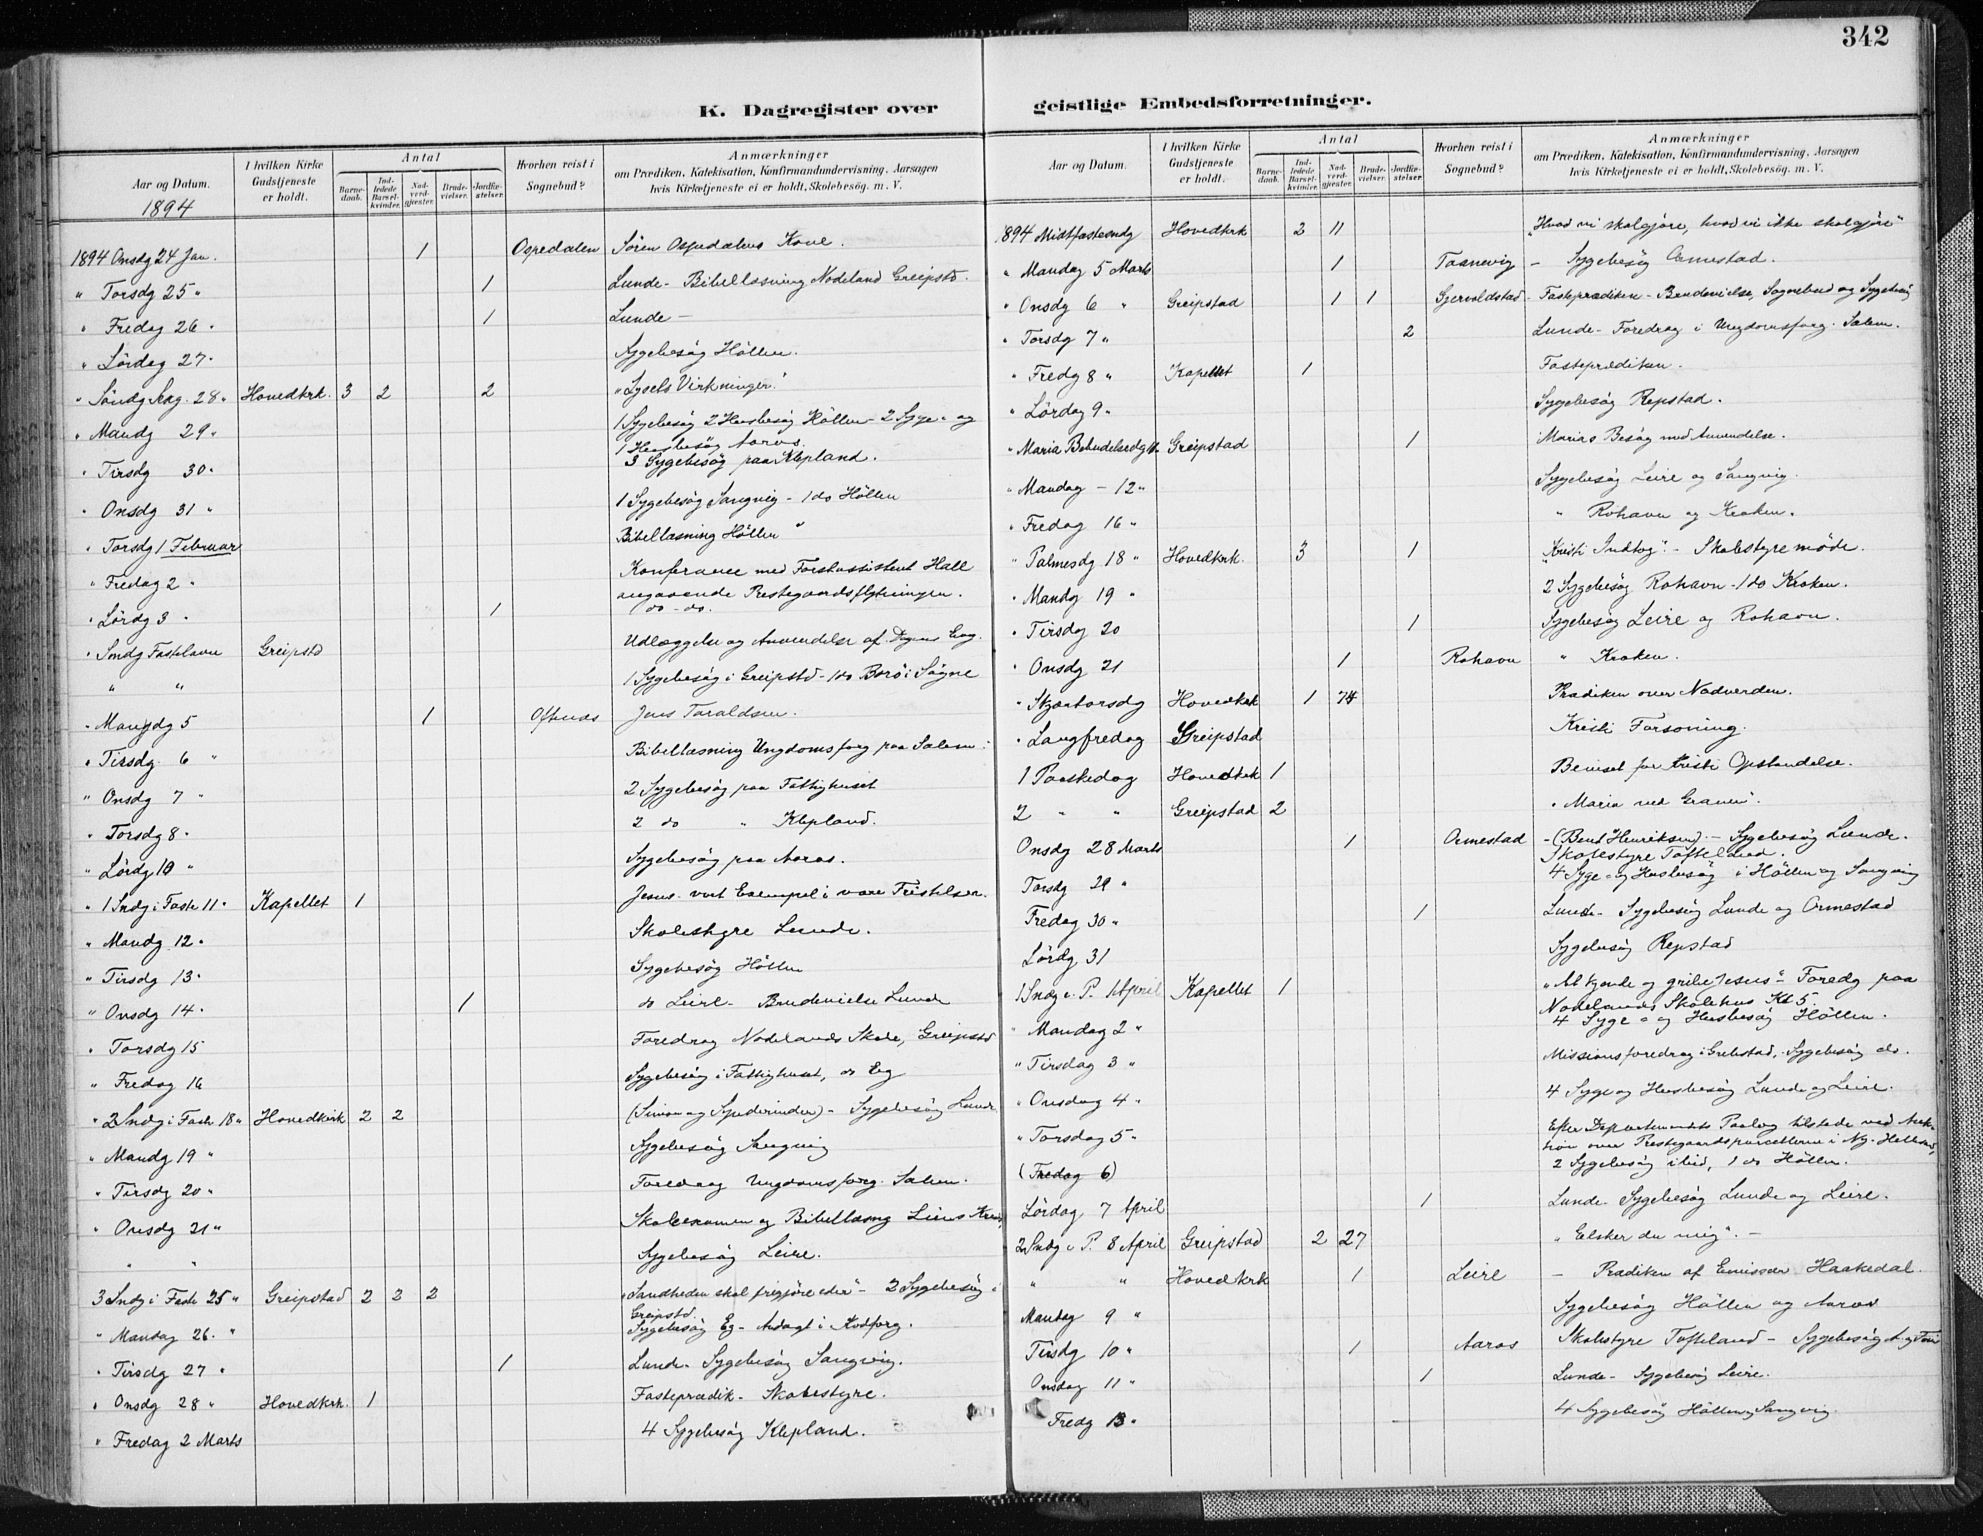 342
K. Dagregister over geistlige Embedsforretninger.
Aar og Datum. 1894
I hvilken Kirke Gudstjeneste er holdt.
Antal
Barne-daab.
Ind-ledede Barsel-kvinder.
Nad-verd-gjæster.
Brude-vielser.
Jordfæ-stelser.
Hvorhen reist i Sognebud?
Anmærkninger
om Prædiken, Katekisation, Konfirmandundervisning, Aarsagen
hvis Kirketjeneste ei er holdt, Skolebesög. m. V.
1894 Onsdg 24 Jan. 1 Ospedalen Sören Ospedalens Kone.
" Torsdg 25 " 1 Lunde - Bibellæsning Nodeland Greipstd.
" Fredag 26 " 1 Lunde -
" Lördag 27 " Sygebesög Höllen.
" Söndg 28 " Hovedkrk. 3 2 2 "Lysets Virkninger."
" Mandg 29 " 1 Sygebesög 2 Husbesög Höllen - 2 Syge- og
1 Husbesög Aaros.
" Tirsdg 30 " 3 Sygebesög paa Klepland.
" Onsdg 31 " 1 Sygebesög Sangvig - 1 do Höllen
" Torsdg 1 Februar Bibellæsning Höllen "
" Fredag 2 " Konferance med Forstassistent Hall
angaaende Prestegaardsflytningen.
" Lördg 3 " 1 do - do.
" Sondg Fastelavn Greipstd Udlæggelse og Anvendelse af Dagens Evg.
" " 1 Sygebesög i Greipstd - 1 do Borö i Sögne
" Mandg 5 1 Oftenes Jens Taraldsen.
" Tirsdg 6 " Bibellæsning Ungdomsforg paa Salem.
" Onsdg 7 " 2 Sygebesög paa Fattighuset
" Torsdg 8 " 2 do " Klepland.
" Lördg 10 " Sygebesög paa Aaros.
" 1 Sndg i Faste 11 " Kapellet 1 Jesus vort Exempel i vore Fristelser.
" Mandg 12 " Skolestyre Lunde.
" Tirsdg 13 " Sygebesög Höllen
" Onsdg 14 " 1 do Leire - Brudevielse Lunde
" Torsdg 15 Foredrag Nodelands Skole, Greipstd
" Fredag 16 Sygebesög i Fattighuset, do Eg
" 2 Sndg i Faste 18 " Hovedkirk 2 2 (Simon og Synderinden) - Sygebesög Lunde
" Mandg 19 " Sygebesög Sangvig
" Tirsdg 20 " Foredrag Ungdomsforg. Salem.
" Onsdg 21 " Skoleexamen og Bibellæsng Liens
" " Sygebesög Leire.
3 Sndg i Faste 25 " Greipstad 2 2 2 "Sandheden skal frigjöre eder" - 2 Sygebesög i
Greipstd.
" Mandag 26 " Sygebesög Eg - Andagt i
" Tirsdg 27 " 1 Lunde - Sygebesög Sangvig.
" Onsdg 28 " Hovedkrk. 1 Fasteprædik - Skolestyre.
" Fredag 2 Marts 4 Sygebesög Klepland.
Aar og Datum.
I hvilken Kirke Gudstjeneste er holdt.
Antal
Barne-daab.
Ind-ledede Barsel-kvinder.
Nad-verd-gjæster.
Brude-vielser.
Jordfæ-stelser.
Hvorhen reist i Sognebud?
Anmærkninger
om Prædiken, Katekisation, Konfirmandundervisning, Aarsagen
hvis Kirketjeneste ei er holdt, Skolebesög. m. V.
1894 Midtfastesndg Hovedkrk 2 11 "Hvad vi skal gjöre, hvad vi ikke skal gjöre"
" Mandag 5 Marts 1 Taanevig - Sygebesög Ormestad.
" Onsdg 6 " Greipstad 1 1 Gjervoldstad - Fasteprædiken - Brudevielse, Sognebud og Sygebesög
" Torsdg 7 " 2 Lunde - Foredrag i Ungdomsforg. Salem.
" Fredg 8 " Kapellet 1 Fasteprædiken.
" Lördag 9 " Sygebesög Repstad.
" Maria Bebudelsesdg 11 Greipstad 1 Marias Besög med Anvendelse.
" Mandag - 12 " Sygebesög Leire og Sangvig.
" Fredag 16 " " Rohavn og Kroken.
" Palmesdg 18 " Hovedkrk. 3 1 "Kristi Indtog" - Skolestyremöde.
" Mandg 19 " 2 Sygebesög Rohavn - 1 do Kroken.
" Tirsdg 20 1 Sygebesög Leire og Rohavn.
" Onsdg 21 1 Rohavn " Kroken.
" Skjærtorsdg Hovedkrk 1 74 Prædiken over Nadverden.
" Langfredag Greipstad Kristi Forsoning.
1 Paaskedag Hovedkrk 1 Beviset for Kristi Opstandelse.
2 " " Greipstad 2 "Maria ved Graven".
Onsdg 28 Marts 1 Ormestad - (Bent Henriksen) - Sygebesög Lunde.
Skolestyre Tofteland.
Torsdg 29 " 4 Syge- og Husbesög i Höllen og Sangvig
Fredag 30 " 1 Lunde - Sygebesög Lunde og Ormestad
Lördg 31 Sygebesög Repstad
1 Sndg e. P. 1 April Kapellet 1 "At kjende og gribe Jesus" - Foredg paa
Nodelands Skolehus Kl 5.
" Mandag 2 " 4 Syge- og Husbesög Höllen.
" Tirsdag 3 " Missionsforedrag i Grebstad, Sygebesög do.
" Onsdag 4 " 4 Syge og Husbesög Lunde og Leire.
" Torsdag 5 " Efter Departementets Paalæg tilstede ved Auk-
tion over Prestegaardsparcellerne i Ny-Hellesund,
(Fredag 6) 2 Sygebesög ibid, 1 do Höllen.
Lördag 7 April 1 Lunde - Sygebesög Lunde og Leire.
2 Sndg e. P. 8 April Greipstad 2 27 "Elsker du mig". -
" " Hovedkrk 1 Leire - Prædiken af Emissær Haakedal.
Mandag 9 " Sygebesög Höllen og Aaros
Tirsdg 10 " 1 Aaros Skolestyre Tofteland - Sygebesög
Onsdag 11 " 1 Lunde - Sygebesög Leire.
Fredg 13 " 4 Sygebesög Höllen og Sangvig.